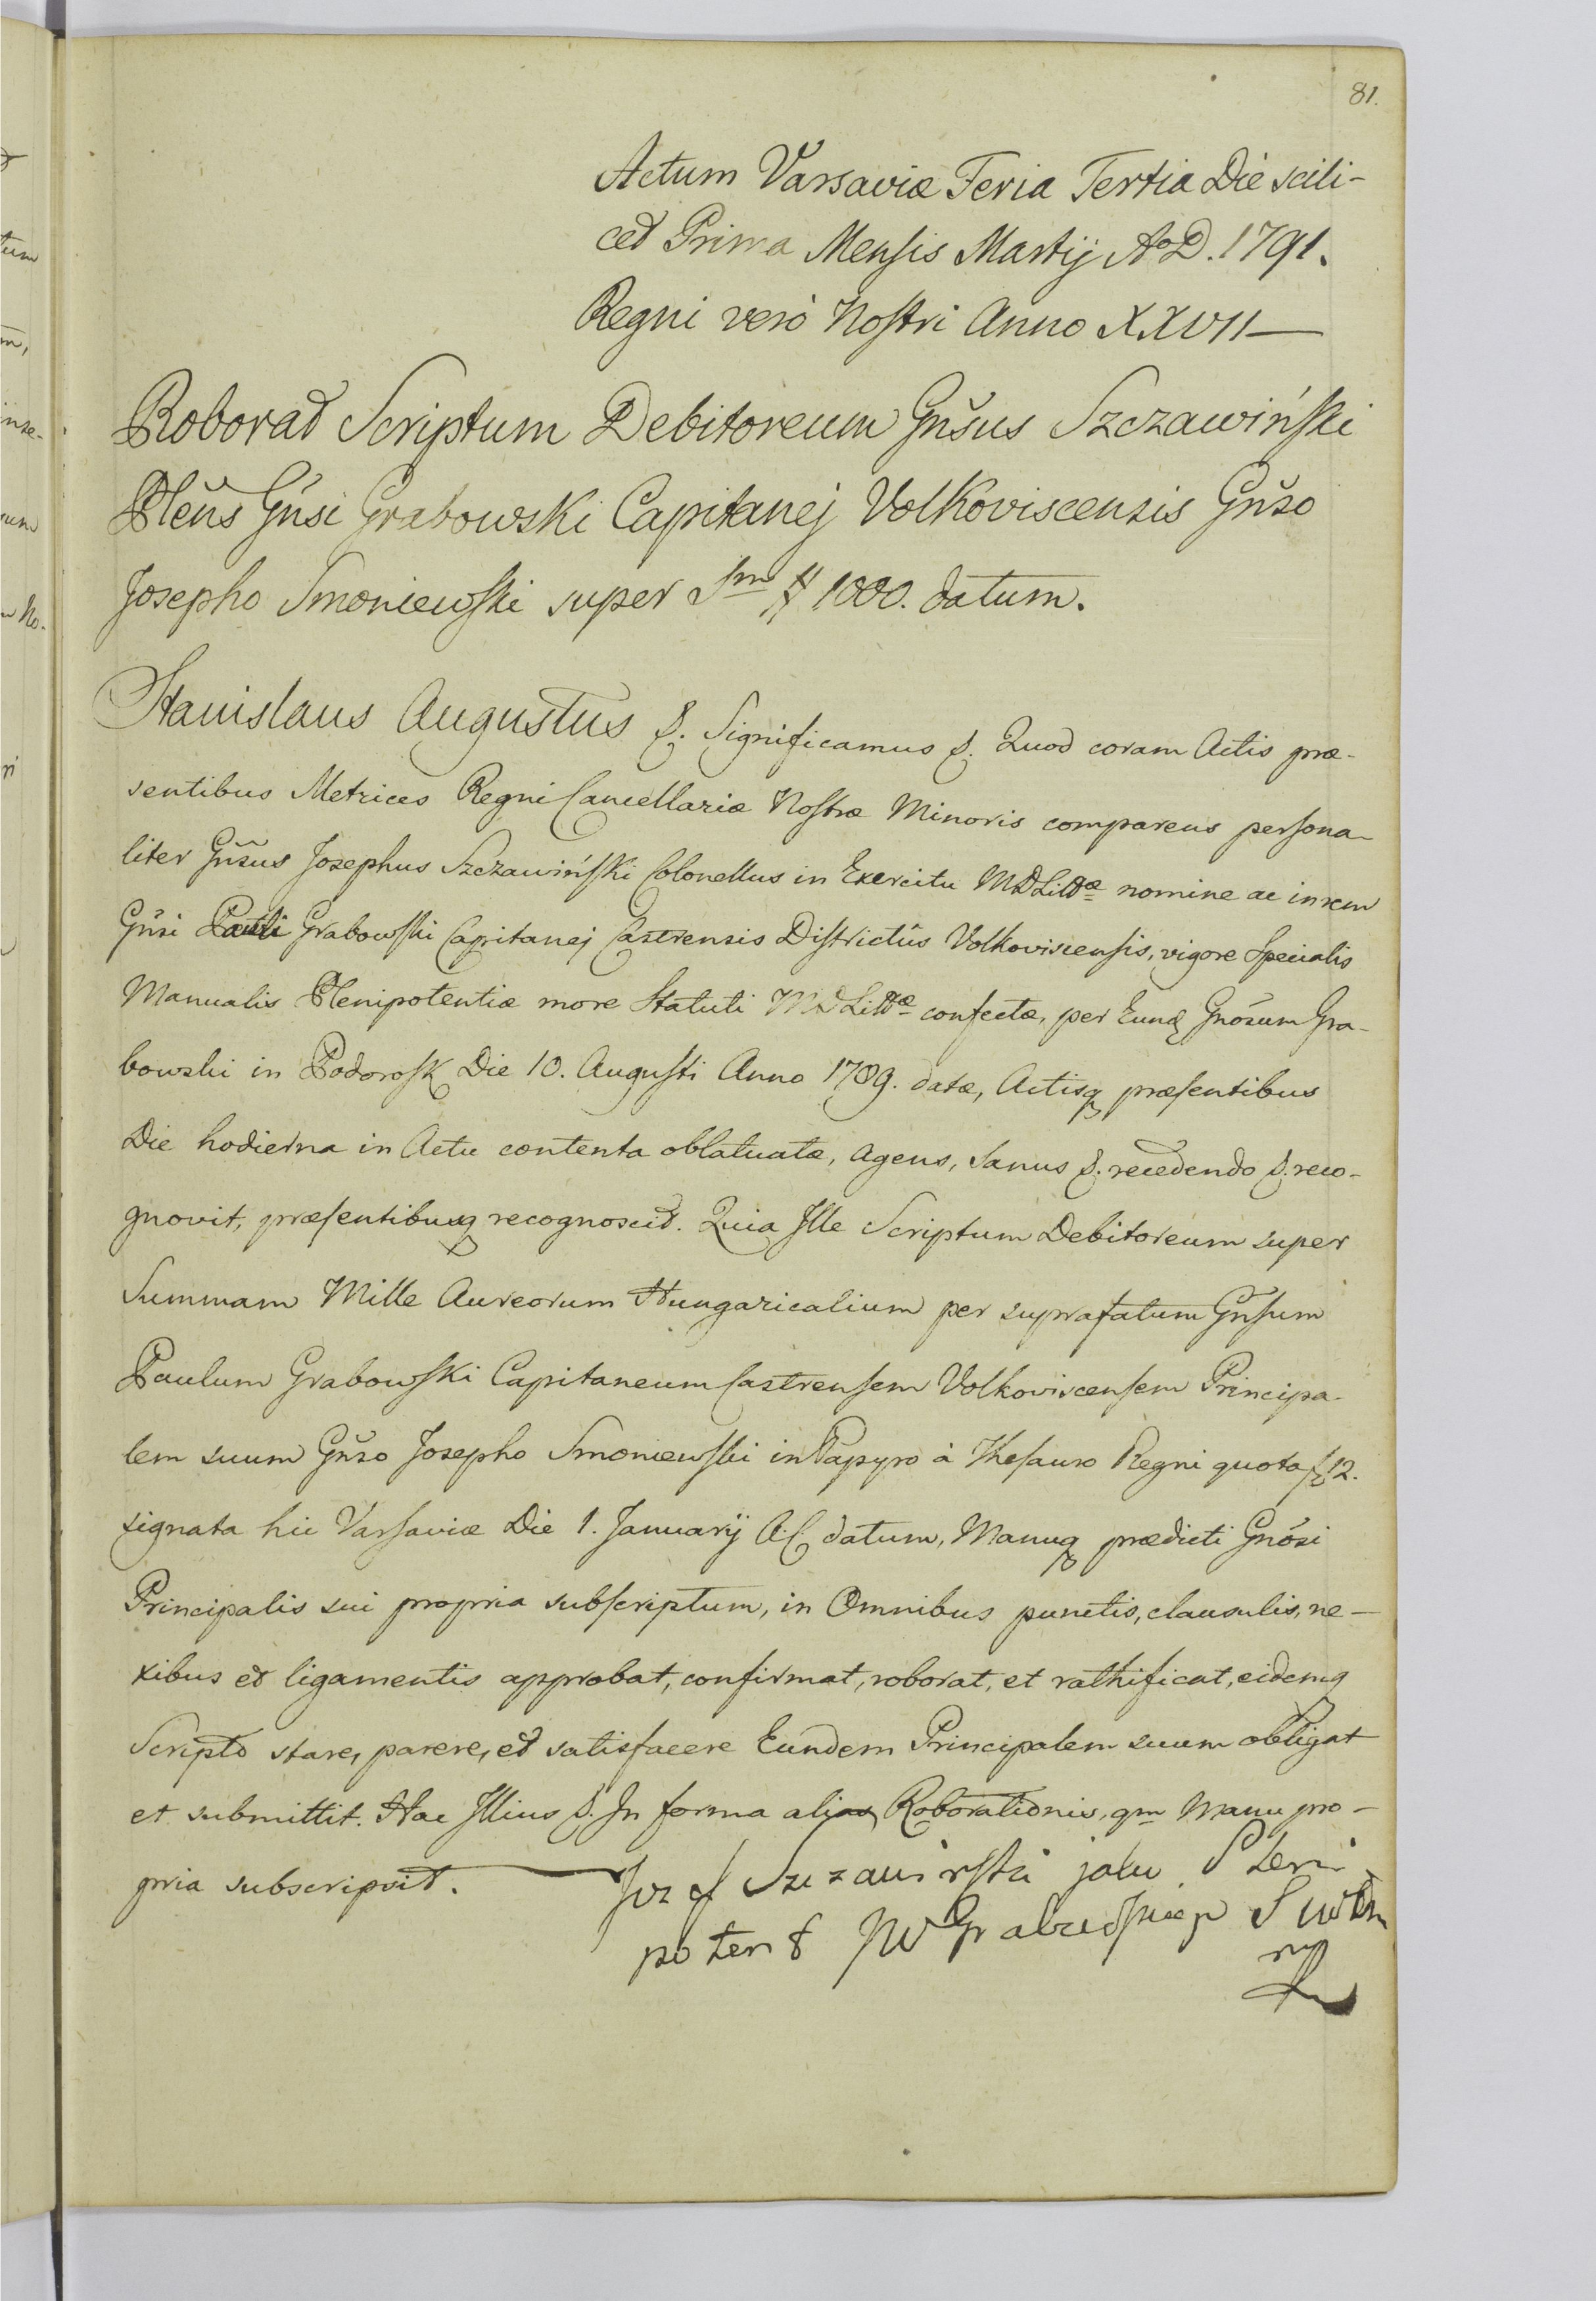 81.
Actum Varsaviæ Feria Tertia Die scili-
cet Prima Mensis Martij AoD. 1791.
Regni verò Nostri Anno XXVII—
Roborat Scriptum Debitoreum Gnšus Szczawiński
Plēns Gnsi Grabowski Capitanej Volkoviscensis Gnšo
Josepho Smoniewski super Sm # 1000. datum.
Stanislaus Augustus &. Significamus &. Quod coram Actis præ-
sentibus Metrices Regni Cancellariæ Nostræ Minoris comparens persona-
liter Gnšus Josephus Szczawiński Colonellus in Exercitu MDLittæ nomine ac in rem
Gnsi Pauli Grabowski Capitanej Castrensis Districtûs Volkoviscensis, vigore Specialis
Manualis Plenipotentiæ more Statuti MDLittæ confectæ, per Eundq Gnōsum Gra-
bowski in Podorosk Die 10. Augusti Anno 1789. datæ, Actisq præsentibus
Die hodierna in Actu contenta oblatuatæ, agens, Sanus &. recedendo &. reco-
gnovit, præsentibusq recognoscit. Quia Ille Scriptum Debitoreum super
Summam Mille Aureorum Hungaricalium per suprafatum Gnsum
Paulum Grabowski Capitaneum Castrensem Volkoviscensem Principa-
lem suum Gnšo Josepho Smoniewski in Papyro à Thesauro Regni quota f 12.
signata hic Varsaviæ Die 1. Januarij A.C. datum, Manuq prædicti Gnōsi
Principalis sui propria subscriptum, in Omnibus punctis, clausulis, ne-
xibus et ligamentis approbat, confirmat, roborat, et rathificat, eidemq
Scripto stare, parere, et satisfacere Eundem Principalem suum obligat
et submittit. Hac Illius &. In forma alias Roborationis, qm Manu pro-
pria subscripsit. Jozef Szczawinski jako Pleni
potent JW Grabowskiego S